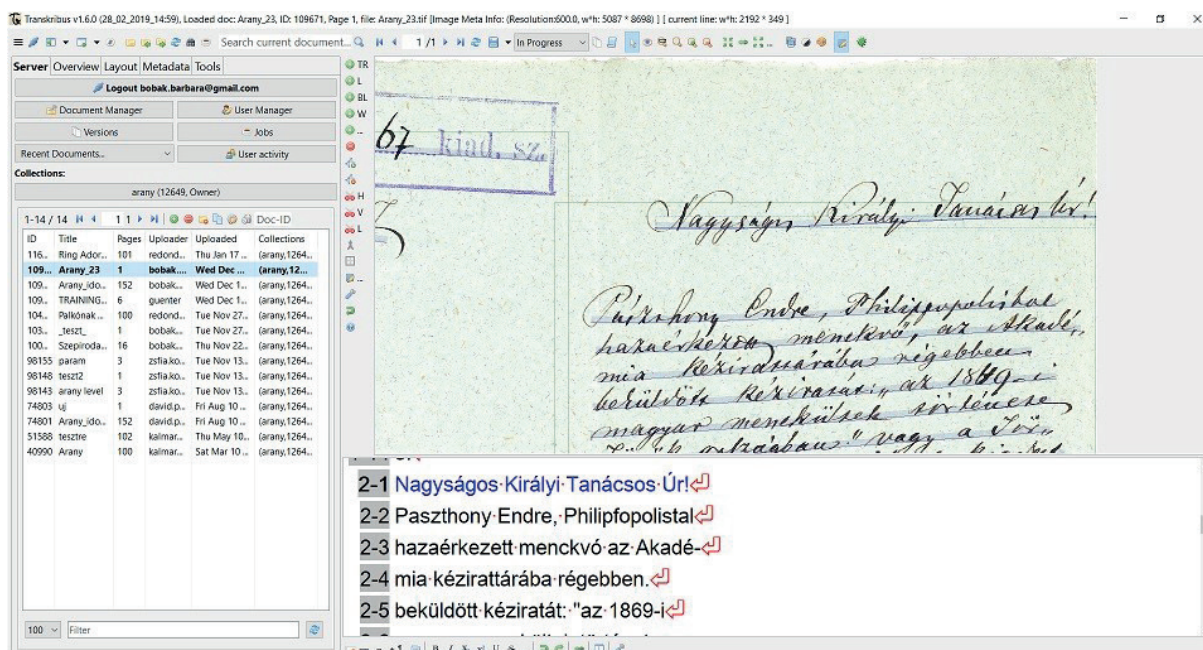 Transkribus v1.6.0 (28_02_2019_14:59), Loaded doc: Arany_23, ID: 109671, Page 1, file: Arany_23.tif [Image Meta Info: (Resolution:600.0, w*h: 5087 * 8698) ] [ current line: w*h: 2192 * 349 ]
Search current document... 1 /1 In Progress
Server Overview Layout Metadata Tools
Logout bobak.barbara@gmail.com
Document Manager User Manager
Versions Jobs
Recent Documents... User activity
Collections:
arany (12649, Owner)
1-14 / 14 1 1 Doc-ID
ID Title Pages Uploader Uploaded Collections
116... Ring Ador... 101 redond... Thu Jan 17 ... (arany,1264...
109... Arany_23 1 bobak.... Wed Dec ... (arany,12...
109... Arany_ido... 152 bobak... Wed Dec 1... (arany,1264...
109... TRAINING... 6 guenter Wed Dec 1... (arany,1264...
104... Palkónak ... 100 redond... Tue Nov 27... (arany,1264...
103... _teszt_ 1 bobak... Tue Nov 27... (arany,1264...
100... Szepiroda... 16 bobak... Thu Nov 22... (arany,1264...
98155 param 3 zsfia.ko... Tue Nov 13... (arany,1264...
98148 teszt2 1 zsfia.ko... Tue Nov 13... (arany,1264...
98143 arany level 3 zsfia.ko... Tue Nov 13... (arany,1264...
74803 uj 1 david.p... Fri Aug 10 ... (arany,1264...
74801 Arany_ido... 152 david.p... Fri Aug 10 ... (arany,1264...
51588 tesztre 102 kalmar... Thu May 10... (arany,1264...
40990 Arany 100 kalmar... Sat Mar 10 ... (arany,1264...
100 Filter
TR
L
BL
W
...
H
V
L
67 kiad. sz.
Nagyságos Királyi Tanácsos Úr!
Pászthory Endre, Philippopolisból
hazaérkezett menekvő, az Akadé,
mia kézirattárába régebben
beküldött kéziratát: „az 1849-i
magyar menekültek története
"vagy a
2-1 Nagyságos·Királyi·Tanácsos·Úr!
2-2 Paszthony·Endre,·Philipfopolistal
2-3 hazaérkezett·menckvó·az·Akadé-
2-4 mia·kézirattárába·régebben.
2-5 beküldött·kéziratát:·"az·1869-i